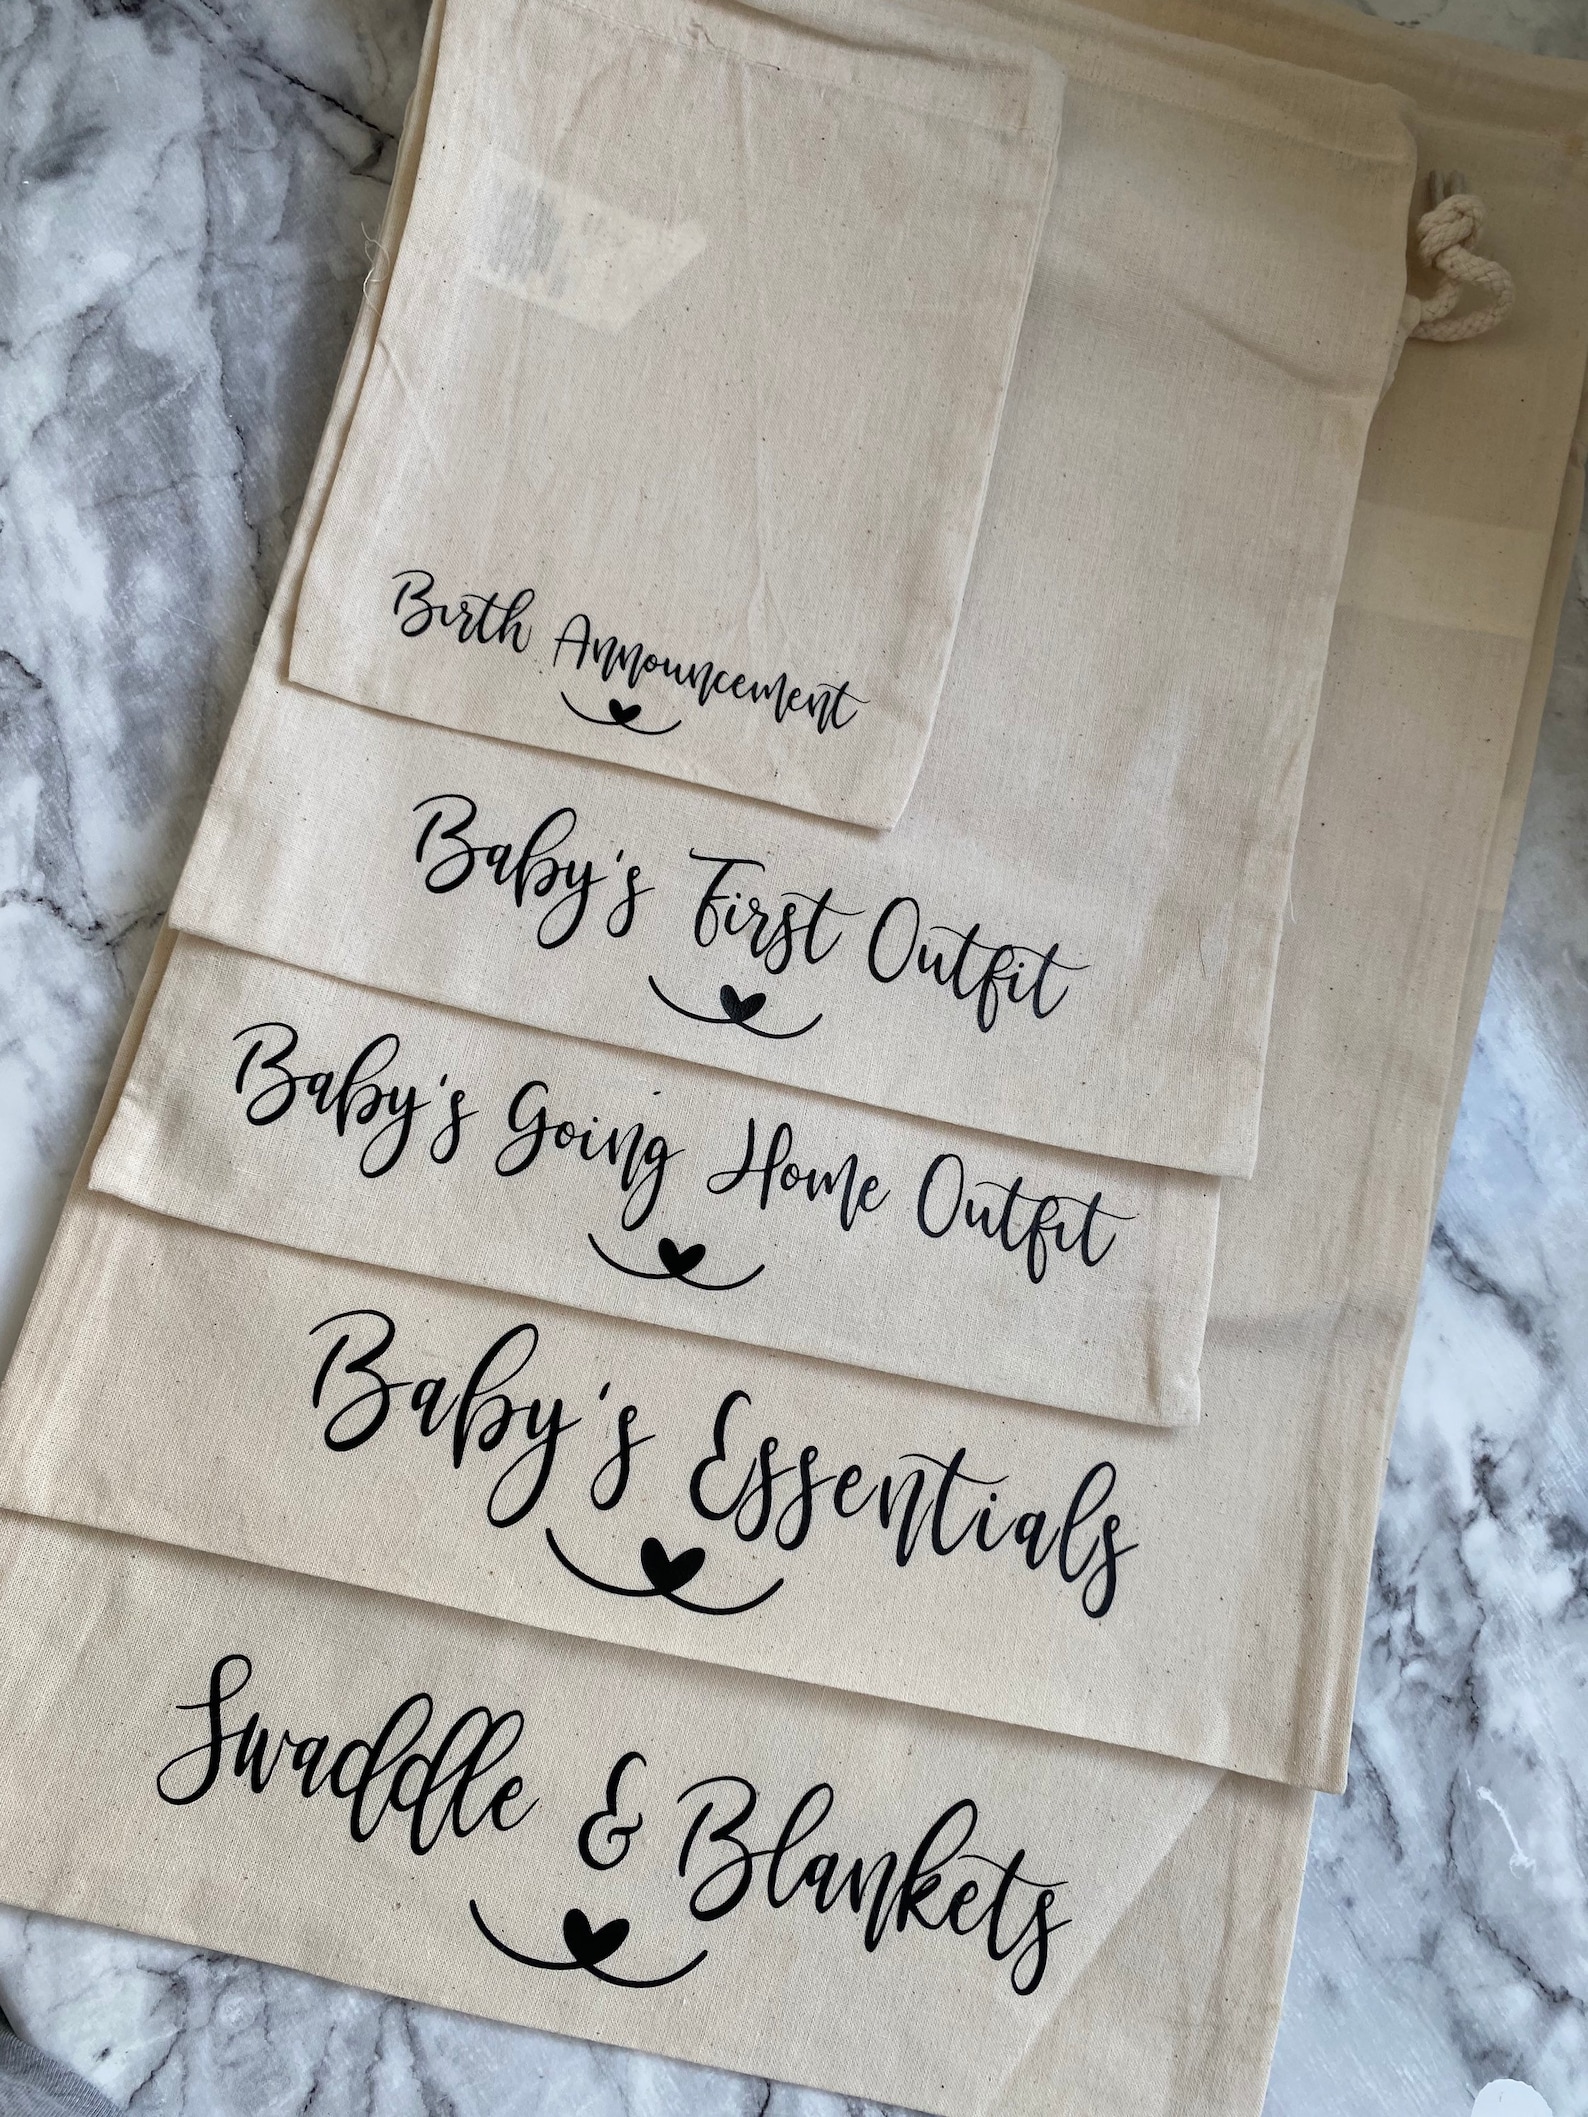 Birth Announcement
Baby's First Outfit
Baby's Going Home Outfit
Baby's Essentials
Swaddle & Blankets